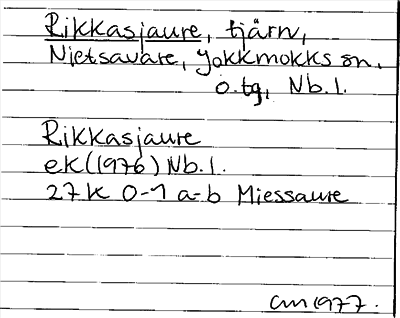 Rikkasjaure, tjärn,
Nietsavare, Jokkmokks sn.
o. tg, Nb.l.
Rikkasjaure
ek (1976) Nb.l.
27 K 0-1 a-b Miessaure
am 1977.